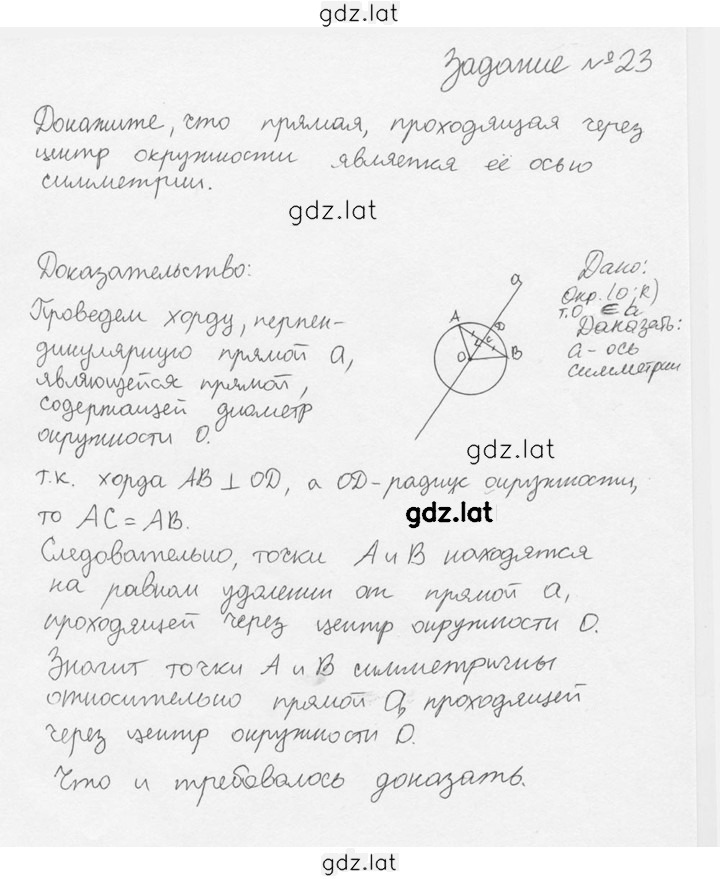 gdz.lat
Задание №23
Докажите, что прямая, проходящая через
центр окружности является её осью
симметрии.
gdz.lat
Доказательство:
Проведем хорду, перпен-
дикулярную прямой a,
являющейся прямой,
содержащей диаметр
окружности O.
a
A
D
C
O
B
Дано:
Окр. (O; R)
т.O ∈ a
Даказать:
a - ось
симметрии
gdz.lat
т.к. хорда AB ⊥ OD, а OD - радиус окружности,
то AC = AB.
gdz.lat
Следовательно, точки A и B находятся
на равном удалении от прямой a,
проходящей через центр окружности O.
Значит точки A и B симметричны
относительно прямой a, проходящей
через центр окружности O.
Что и требовалось доказать.
gdz.lat